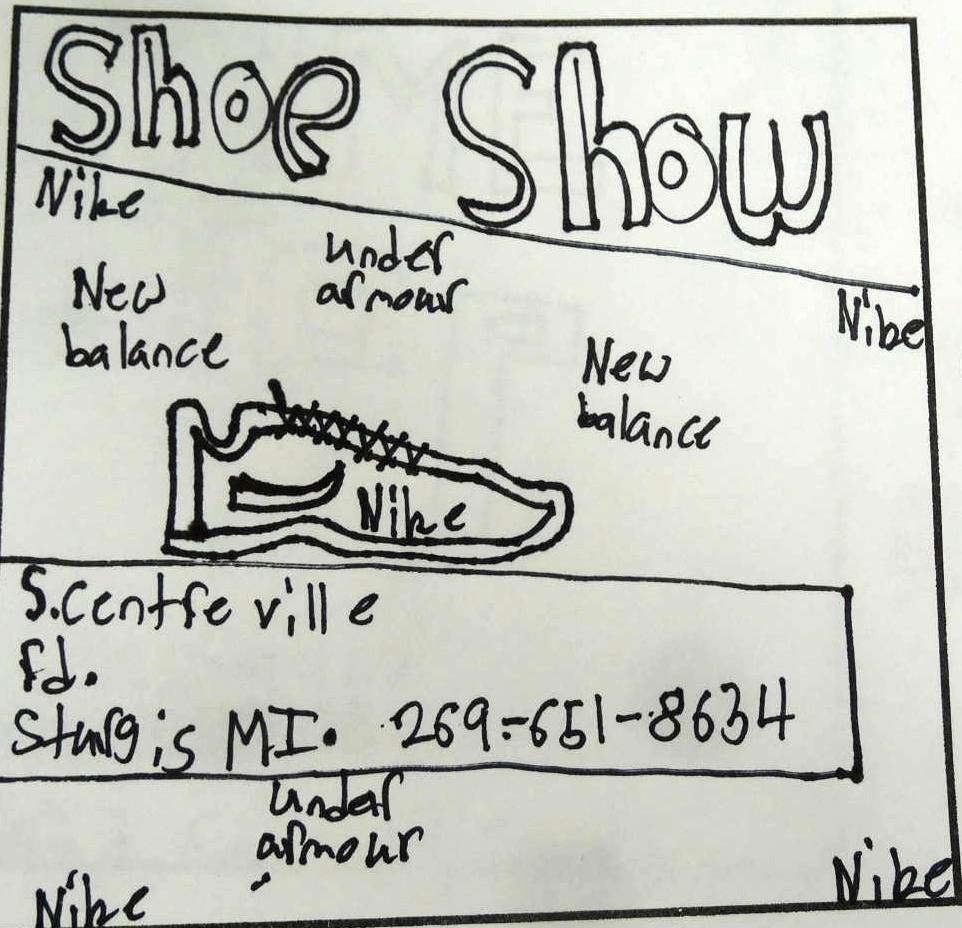 Shoe Show
Nike
under
armour
New
balance
Nike
New
balance
Nike
S.centre ville
rd.
Sturgis MI. 269-651-8634
under
armour
Nike
Nike